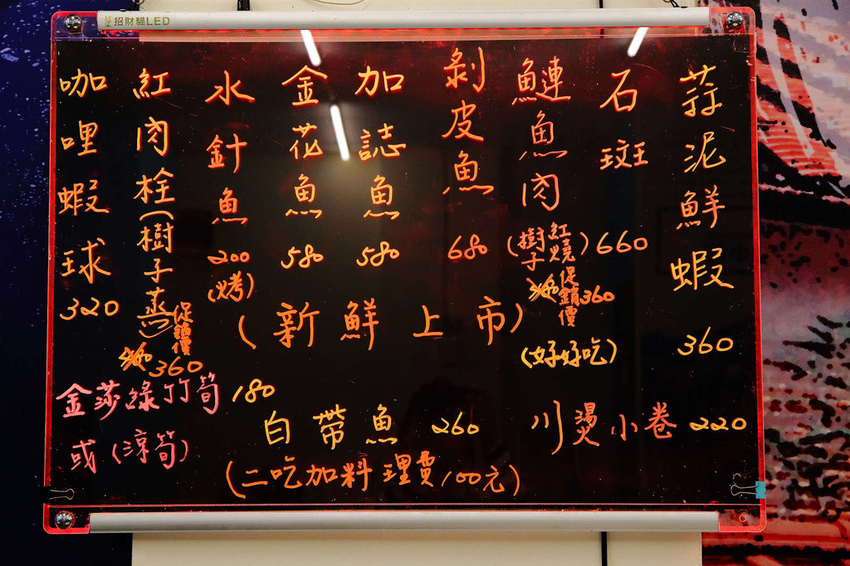 招財貓LED
蒜泥鮮蝦 360
石斑 660
鰱魚肉(紅燒樹子)促銷價360
(好好吃)
剝皮魚 680
加誌魚 580
金花魚 580
水針魚 200(烤)
紅肉栓(樹子蒸)促銷價360
咖哩蝦球 320
(新鮮上市)
金莎綠竹筍 180
或(涼筍)
白帶魚 260
川燙小卷 220
(二吃加料理費100元)